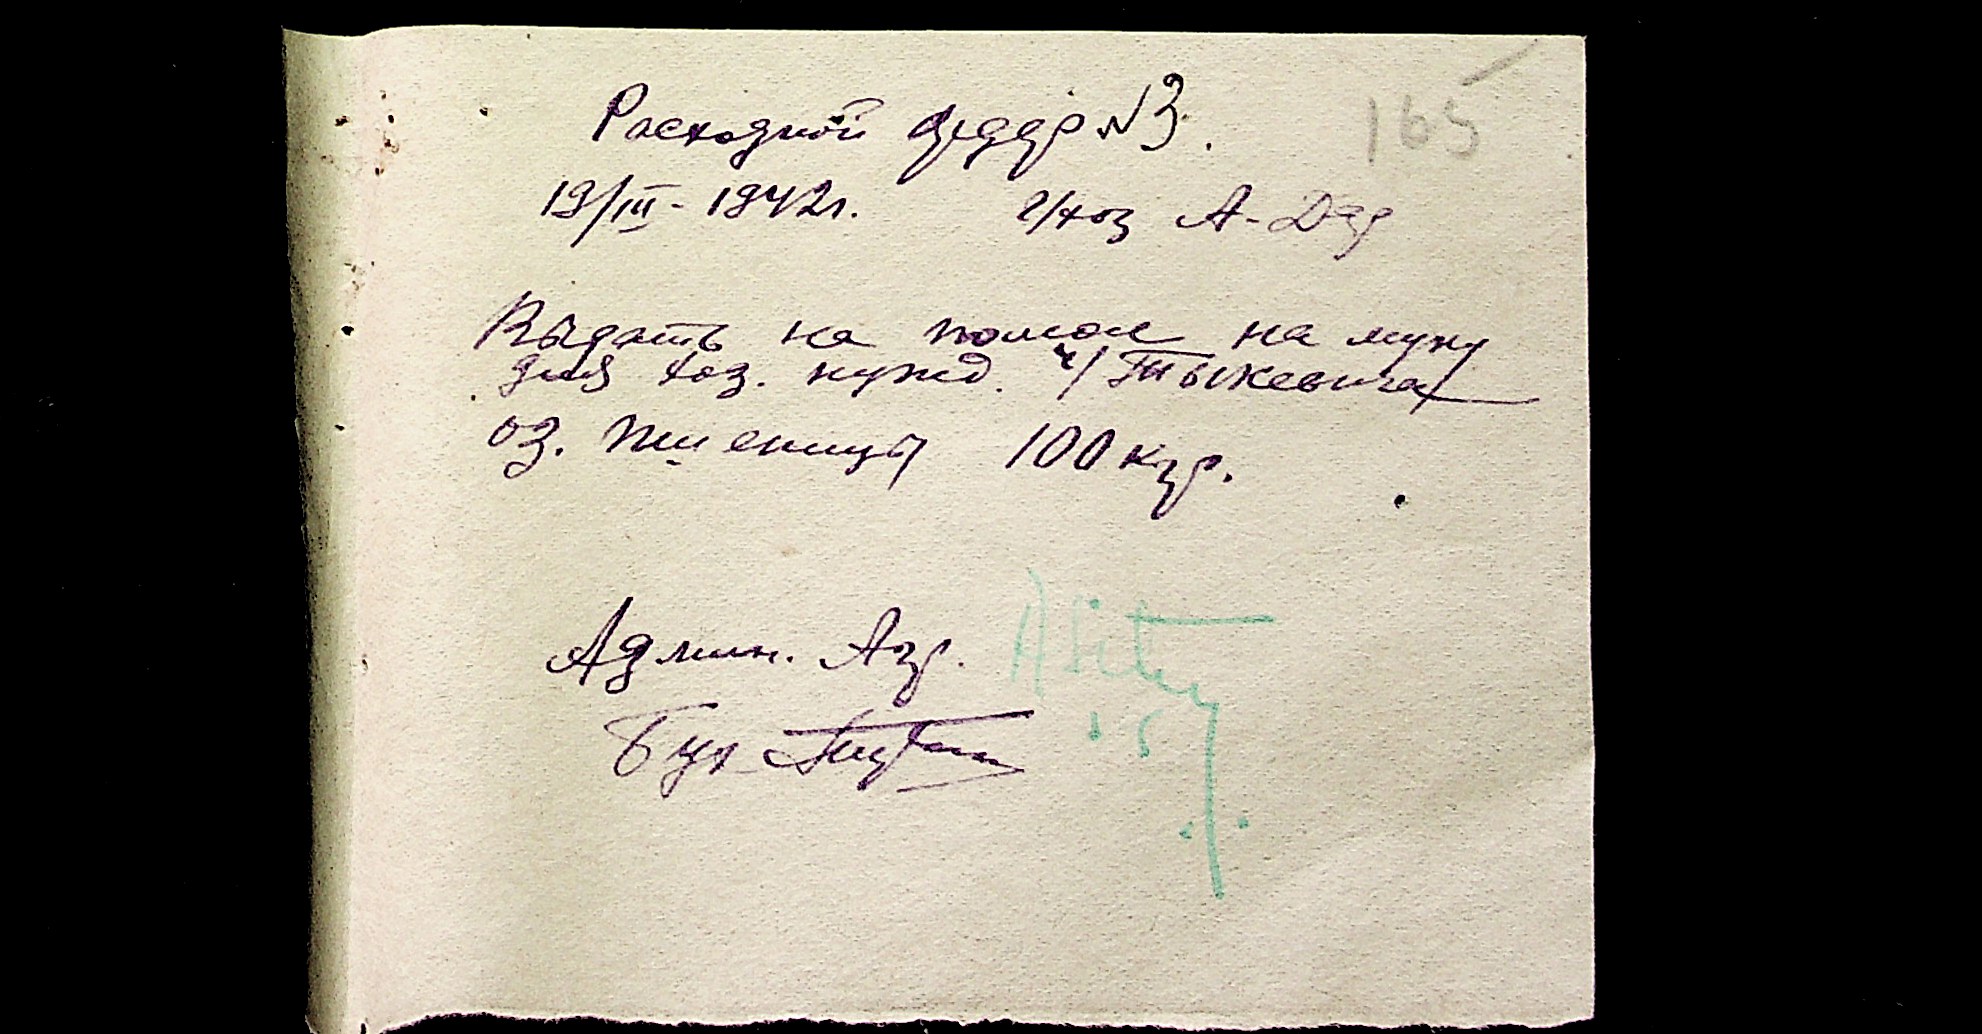 Расходной ордер №3.
165
19/III - 1942г. г/хоз А-Дар
Выдать на помол на муку
для хоз. нужд. ч/ Тыкевича/
оз. пшеницы 100 кгр.
Админ. Агр.
Бух.